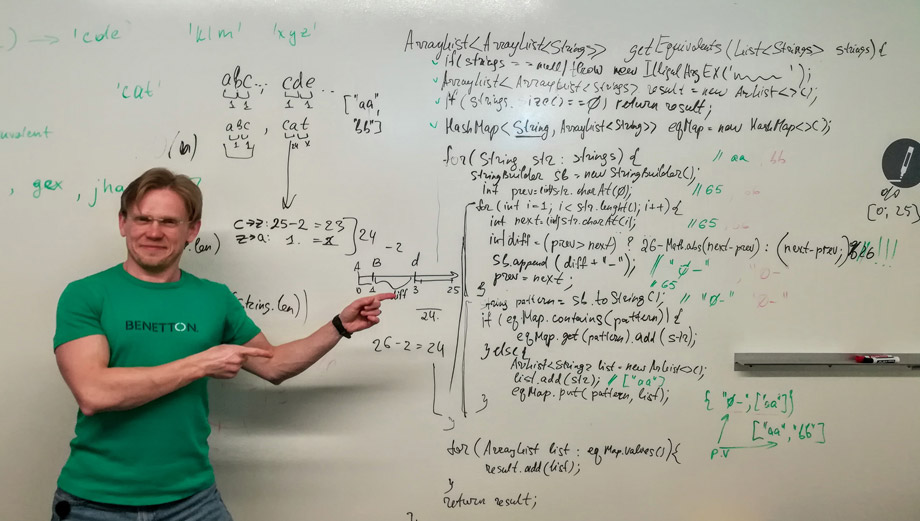 → 'cde' 'klm' 'xyz'
'cat'
abc.., cde..
1 1 1 1
["aa",
"bb"]
abc, cat
1 1 24 x
, gex,
c→z: 25-2 = 23
z→a: 1.
24
-2
A B d
0 1 3 25
diff
24.
26-2 = 24
BENETTON.
ArrayList<ArrayList<Strings>> getEquivalents (List<Strings> strings) {
if (strings == null) throw new IllegalArgEX(' ');
ArrayList<ArrayList<Strings> result = new ArList<>();
if (strings. ize() == 0) return result;
HashMap<String, ArrayList<String>> eqMap = new HashMap<>();
for (String str : strings) { // aa bb
StringBuilder sb = new StringBuilder();
int prev = (int)str.charAt(0); // 65
for (int i=1; i< str.lenght(); i++) {
int next = (int)str.charAt(i); // 65
int diff = (prev > next) ? 26 - Math.abs(next-prev) : (next-prev; !!!
sb.append (diff + "-"); // "0-" "0-"
prev = next; // 65
}
String pattern = sb.toString(); // "0-" "0-"
if (eqMap.contains(pattern)) {
eqMap.get(pattern).add (str);
} else {
ArList<String> list = new ArList<>();
list.add(str); // ["aa"]
eqMap.put (pattern, list);
}
}
for (ArrayList list : eqMap.values()) {
result.add(list);
}
return result;
[0; 25]
{ "0-", ["aa"] }
["aa", "bb"]
P.V